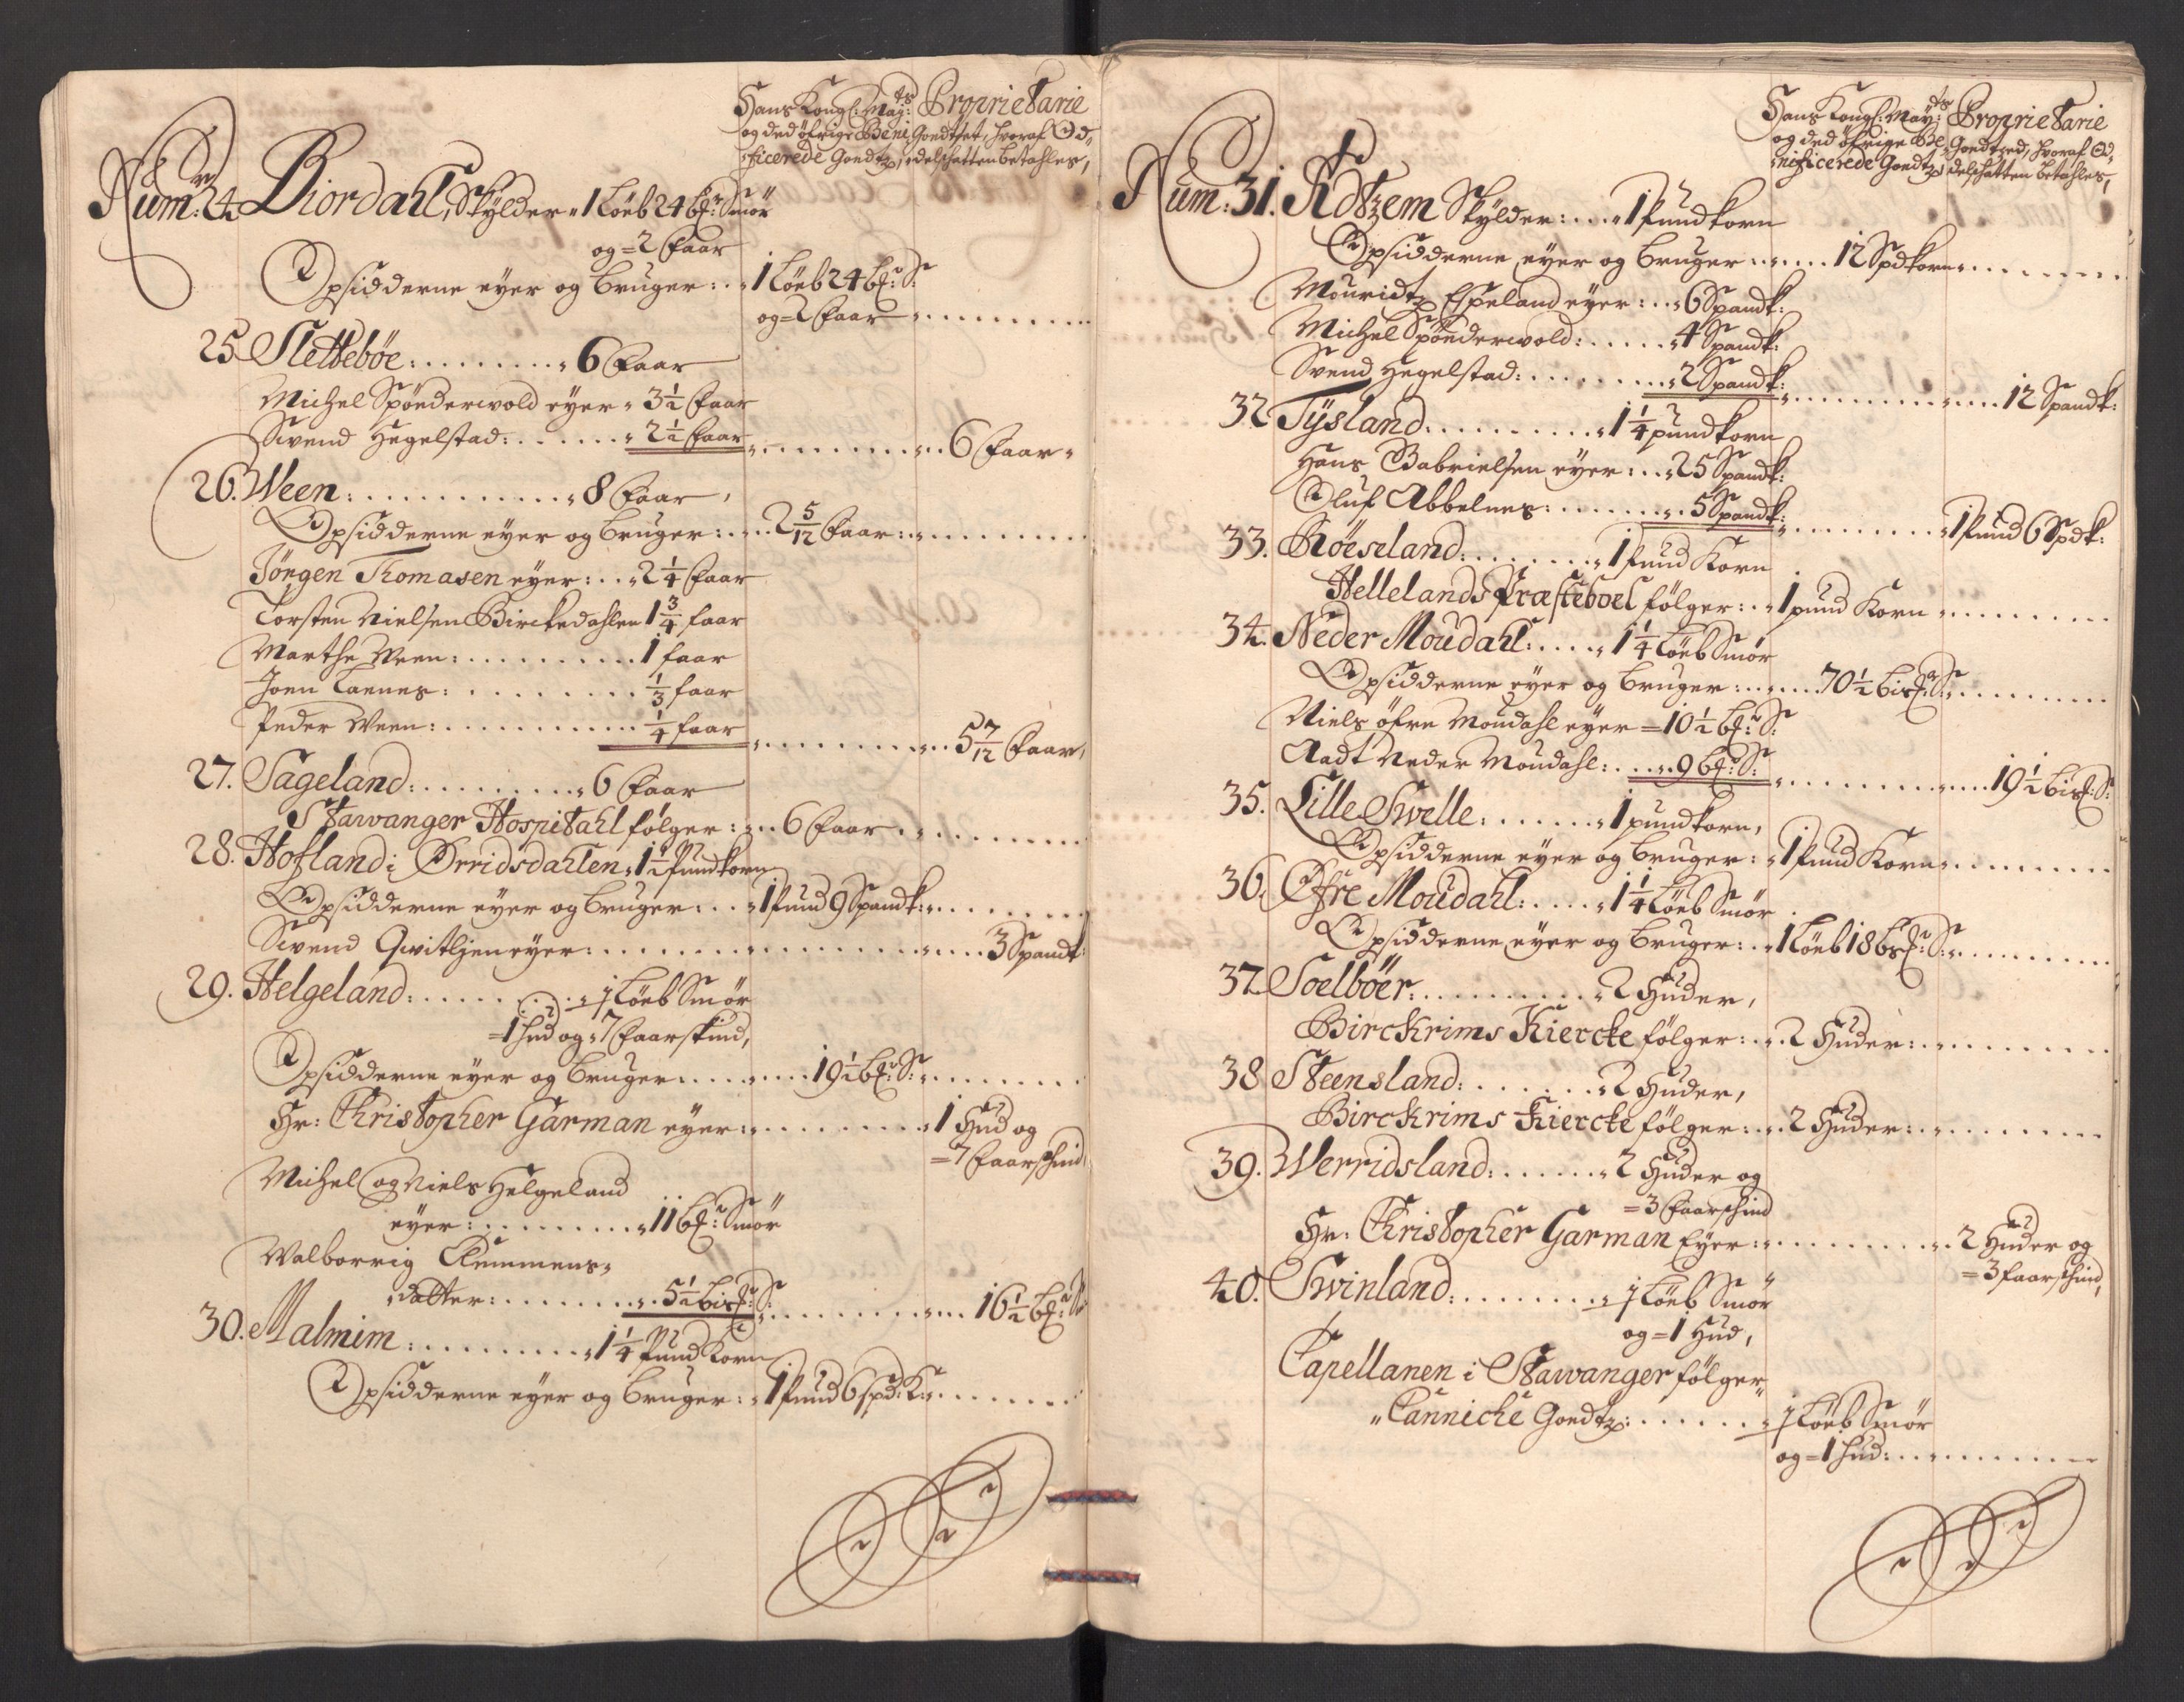 Hans Kongl: May:ts Proprietarie
og ded öfrige Beni Goedtset, hvoraf Od-
ficerede Goedtz, edelschatten betahles,
Num: 24. Biordahl, Skylder „ 1 Löeb 24 bd:r Smör
og = 2 Faar
Opsidderne eyer og bruger: „ 1 Löeb 24 bd:r S:
og = 2 Faar
25. Slettebøe: „ 6 Faar
Michel Spönderwold eyer „ 3 1/2 Faar
Svend Hegelstad: „ 2 1/2 Faar „ 6 Faar
26. Ween: „ 8 Faar,
Opsidderne eyer og bruger: 2 5/12 Faar:
Jörgen Thomasen eyer: „ 2 1/4 Faar
Torsten Nielsen Birckedahlen 1 3/4 faar
Marthe Ween: 1 faar
Joen Tarnes: 1/3 faar
Peder Ween: 1/4 faar „ 5 7/12 Faar,
27. Sageland: „ 6 Faar
Stawanger Hospitahl følger: 6 Faar
28. Hofland i Ørridsdahlen „ 1 1/2 Pundkorn
Opsidderne eyer og bruger: „ 1 Pund 9 Spandk:
Svend Qvitljen eyer: 3 Spandk:
29. Helgeland: „ 1 Löeb Smör
= 1 Hud og „ 7 Faarskind,
Opsidderne eyer og bruger: 19 1/2 bd:r S:
Hr: Christopher Garman eyer: „ 1 Hud og
= 7 Faarschind
Michel og Niels Helgeland
eyer: „ 11 bd:r Smör
Walborrig Clemmens-
datter: „ 5 1/2 bisd:r S: „ 16 1/2 bd:r S:
30. Malmim: „ 1 1/4 Pund Korn
Opsidderne eyer og bruger: „ 1 Pund 6 spd: K:
Hans Kongl: May:ts Proprietarie
og ded öfrige Be Goedtzed, hvoraf Od-
nificerede Goedtz, delschatten betahles,
Num: 31. Ådtzem Skylder: „ 1 Pund korn
Opsidderne eyer og bruger: 12 Spdkorn
Mouridtz Espeland eyer: „ 6 Spandk:
Michel Spönderwold: „ 4 Spandk:
Svend Hegelstad: „ 2 Spandk: „ 12 Spandk:
32. Tysland: „ 1 1/4 pundkorn
Hans Gabrielsen eyer: „ 25 Spandk:
Oluf Abbelnes: „ 5 Spandk: „ 1 Pund 6 Spdk:
33. Röeseland: „ 1 Pund Korn
Hellelands Præsteboel følger: „ 1 pund Korn
34. Neder Moudahl: „ 1 1/4 Löeb Smör
Opsidderne eyer og bruger: 70 1/2 bisd:r S:
Niels öfre Moudahl eyer = 10 1/2 bd:r S:
Aadt Neder Moudahl: „ 9 bd:r S: „ 19 1/2 bisd: S:
35. Lille Swelle: „ 1 pundkorn,
Opsidderne eyer og bruger: „ 1 Pund Korn
36. Øfre Moudahl: „ 1 1/4 Löeb Smör
Opsidderne eyer og bruger: „ 1 Löeb 18 bsd:r S:
37. Soelböer: „ 2 Huder,
Birckrims Kiercke følger: „ 2 Huder:
38. Steensland: „ 2 Huder,
Birckrims Kiercke følger: „ 2 Huder:
39. Werridsland: „ 2 Huder og
= 3 Faarschind
Hr: Christopher Garman Eyer: „ 2 Huder og
= 3 faarschind,
40. Swinland: „ 1 Löeb Smör
og = 1 Hud,
Capellanen i Stawanger følger
„ Cannicke Goedtz: „ 1 Löeb Smör
og = 1 Hud: